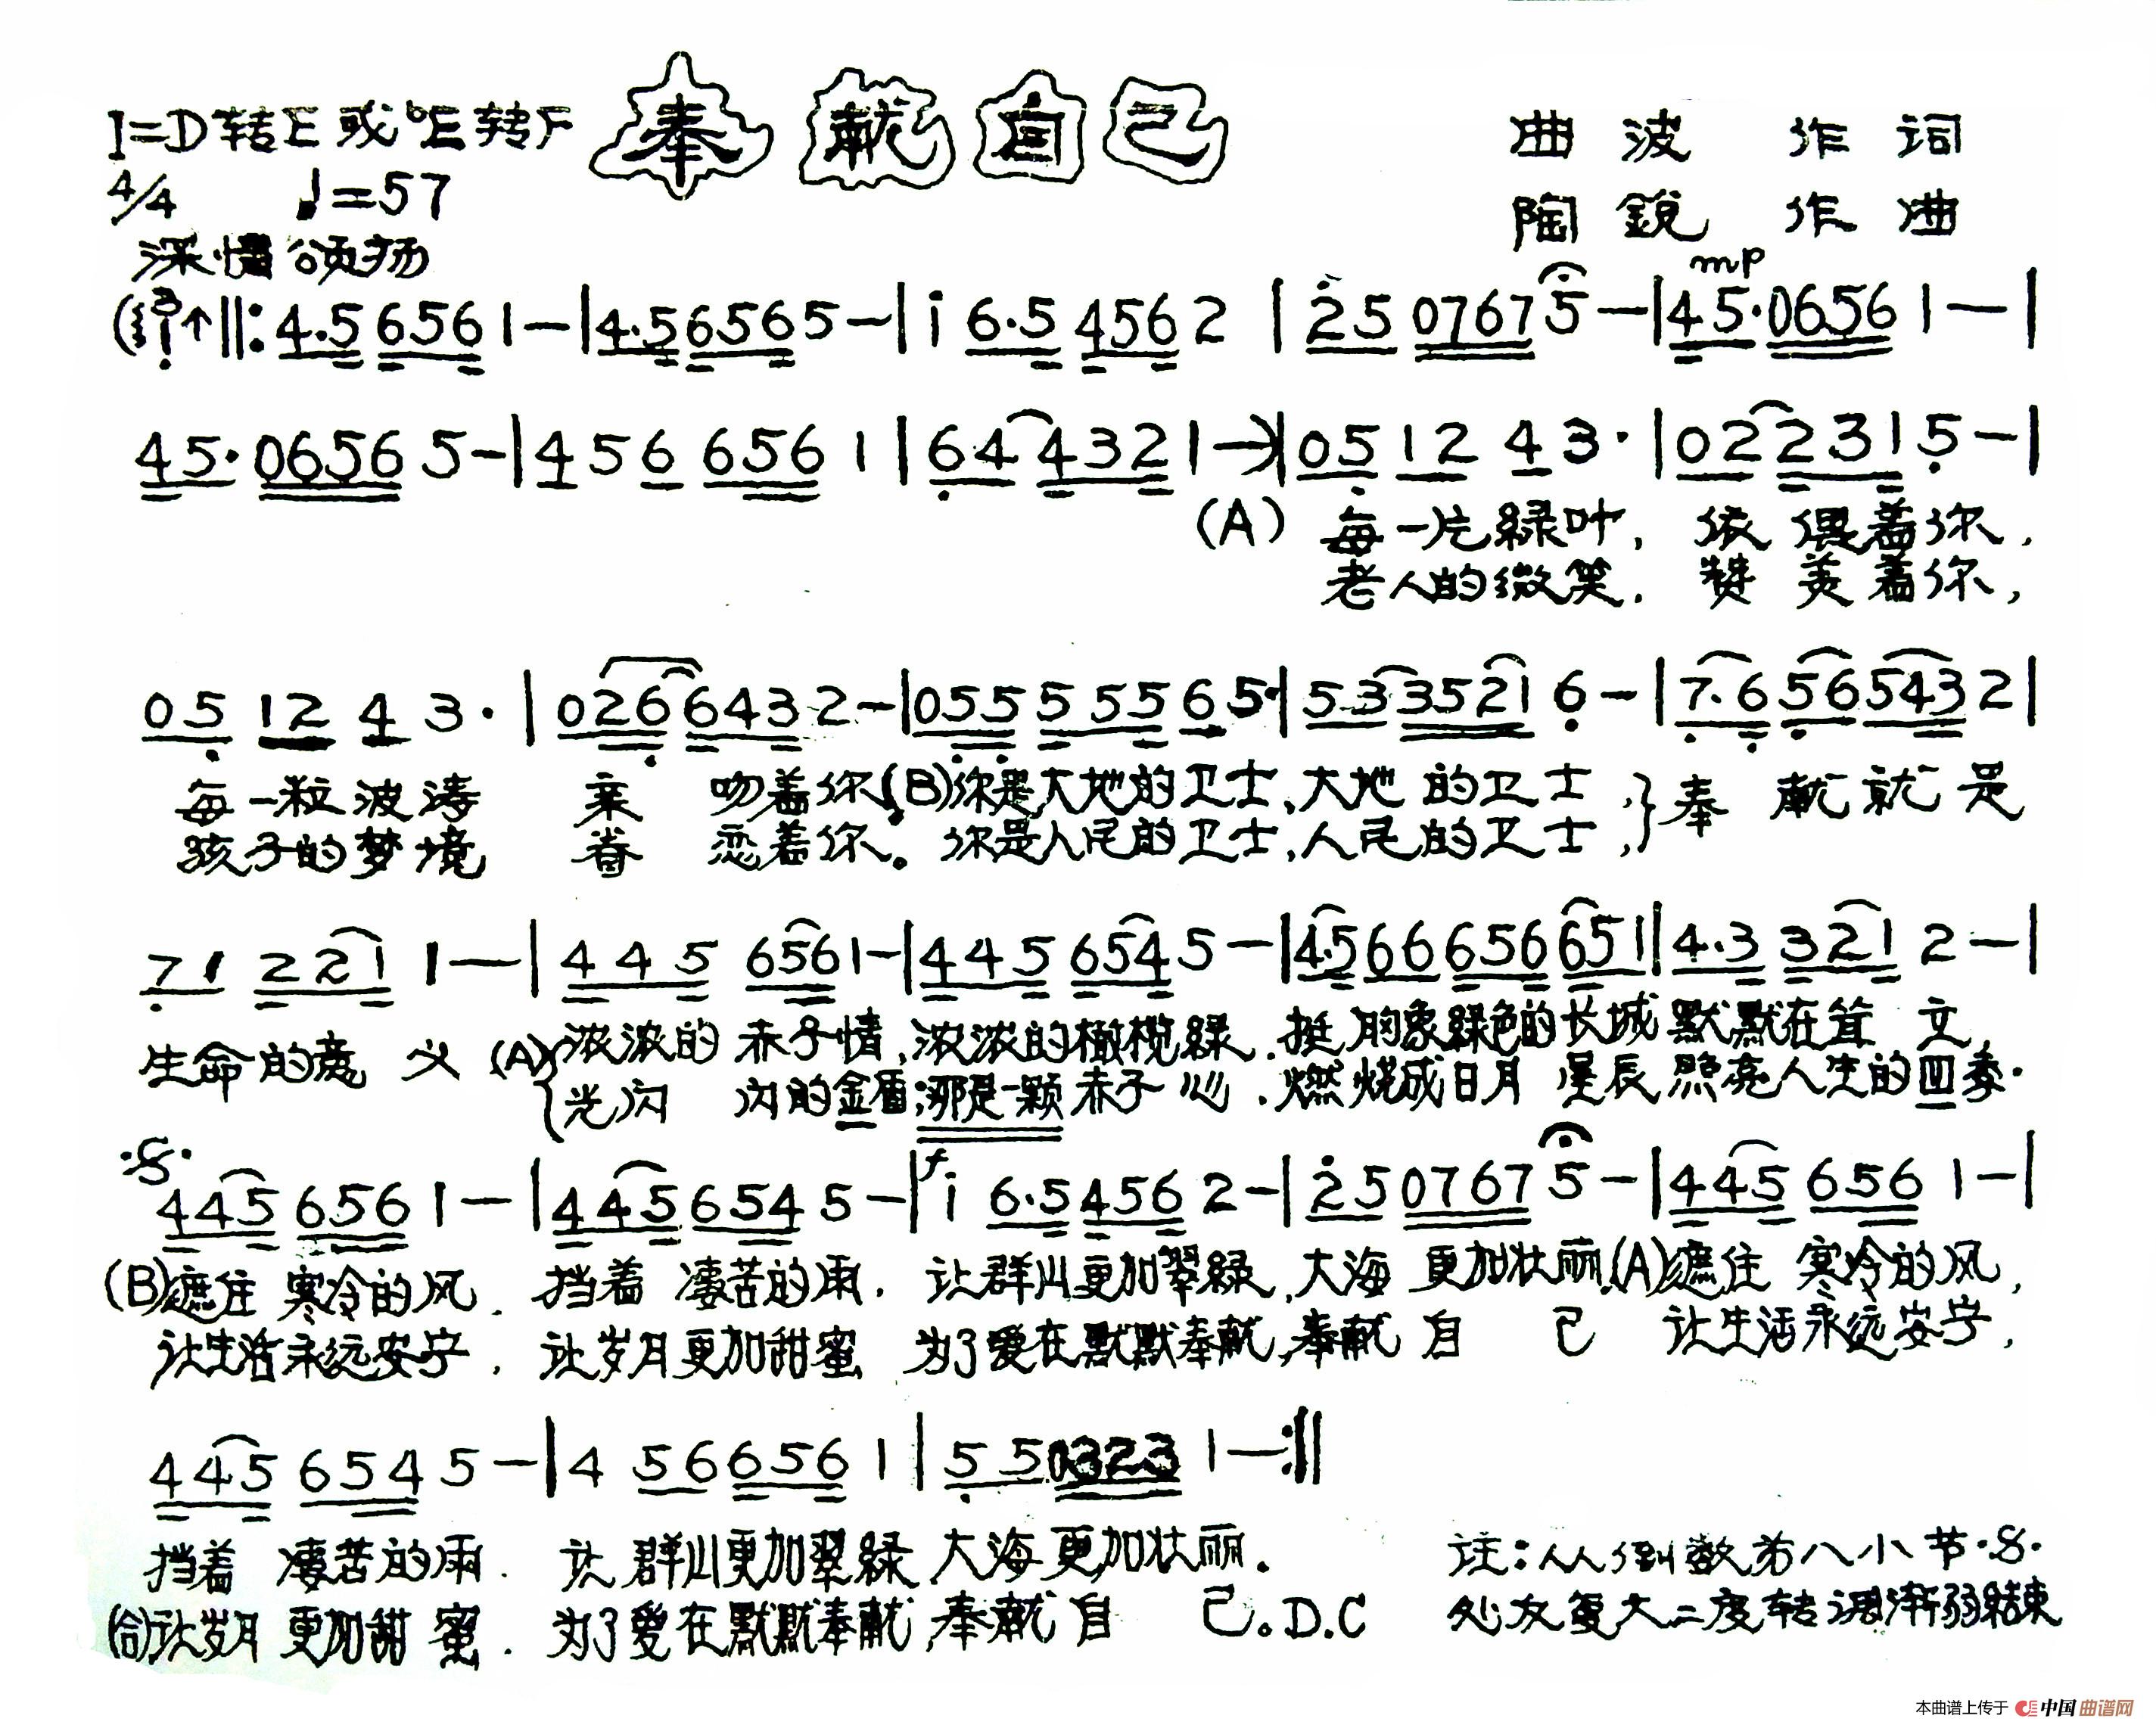 1=D转E或bE转F 奉献自己 曲波 作词
4/4 ♩=57 陶鋭 作曲
深情 颂扬
mp
4.5 656 1—|4.5 656 5—|i 6.5 456 2 |2 5 0767 5—|4 5. 0656 1—|
4 5. 0656 5—|4 5 6 656 1|6 4 432 1—|0 5 1 2 4 3.|0 2 2 3 1 5—|
(A) 每一片緑叶, 依偎着你,
老人的微笑. 赞美着你,
0 5 1 2 4 3.|0 2 6 6 4 3 2—|0 5 5 5 5 5 6 5.|5 3 3 5 2 1 6—|7.6 5 6 5 4 3 2|
每一粒波涛 亲 吻着你(B)你是大地的卫士,大地 的卫士,}奉 献就是
孩子的梦境 眷 恋着你。你是人民的卫士,人民的卫士,
7 1 2 2 1 1—|4 4 5 656 1—|4 4 5 654 5—|4.5 6 6 6 5 6 6 5 1|4.3 3 2 1 2—|
生命的意 义 (A) 浓浓的 赤子情,浓浓的橄榄緑.挺 胸象緑色的长城 默默在耸 立,
光闪 闪的金盾;那是一颗赤子 心.燃 烧成日月 星辰 照亮人生的四季.
f
4 4 5 656 1—|4 4 5 654 5—|i 6.5 456 2—|2 5 0767 5—|4 4 5 656 1—|
(B)遮住 寒冷的风. 挡着 凄苦的雨. 让群山更加翠緑,大海 更加壮丽.(A)遮住 寒冷的风,
让生活永远安宁, 让岁月更加甜蜜 为了爱在默默奉献,奉献 自 己 让生活永远安宁,
4 4 5 654 5—|4 5 6 656 1|5 5 0323 1—:‖
挡着 凄苦的雨. 让 群山更加翠緑 大海更加壮丽. 注:从倒数第八小节·S·
(合)让岁月 更加甜 蜜. 为了爱在默默奉献,奉献 自 己。D.C 处反复大二度转调渐弱结束
本曲谱上传于 中国曲谱网